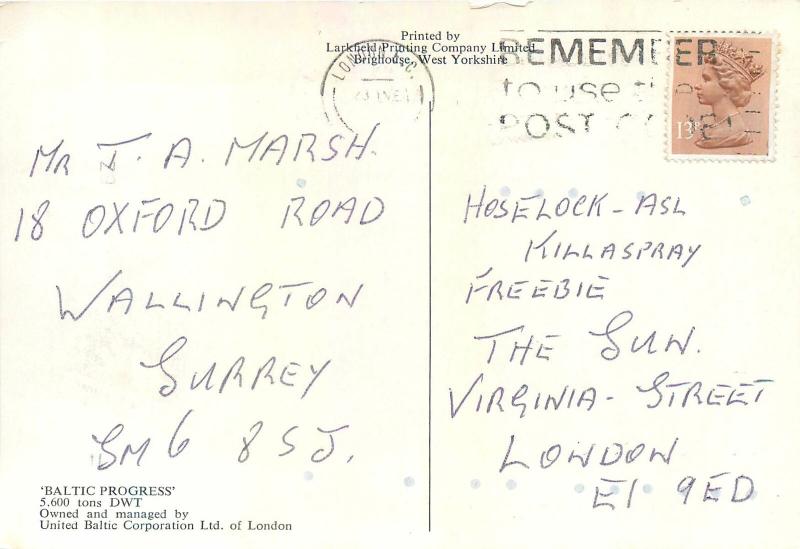 Printed by
Larkfield Printing Company Limited
Brighouse, West Yorkshire
LONDON
REMEMBER
to use the
POST CODE
13P
Mr J. A. MARSH.
18 OXFORD ROAD
WALLINGTON
SURREY
SM6 8SJ.
HOSELOCK-ASL
KILLASPRAY
FREEBIE
THE SUN.
VIRGINIA-STREET
LONDON
E1 9ED
'BALTIC PROGRESS'
5,600 tons DWT
Owned and managed by
United Baltic Corporation Ltd. of London